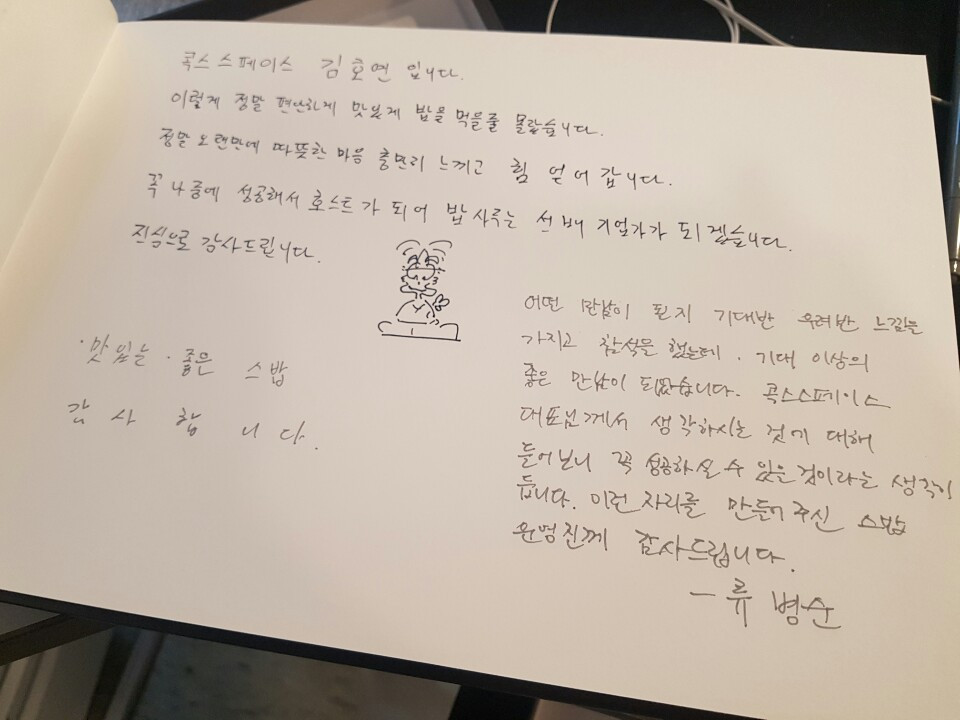 콕스스페이스 김호연 입니다.
이렇게 정말 편안하게 맛있게 밥을 먹을줄 몰랐습니다.
정말 오랜만에 따뜻한 마음 충만히 느끼고 힘 얻어 갑니다.
꼭 나중에 성공해서 호스트가 되어 밥 사주는 선배 기업가가 되겠습니다.
진심으로 감사드립니다.
·맛있는·좋은 스밥
감사합니다.
어떤 만남이 될지 기대반 우려반 느낌을
가지고 참석을 했는데. 기대 이상의
좋은 만남이 되었습니다. 콕스스페이스
대표님께서 생각하시는 것에 대해
들어보니 꼭 성공하실 수 있을것이라는 생각이
듭니다. 이런 자리를 만들어 주신 스밥
운영진께 감사드립니다.
- 류병순